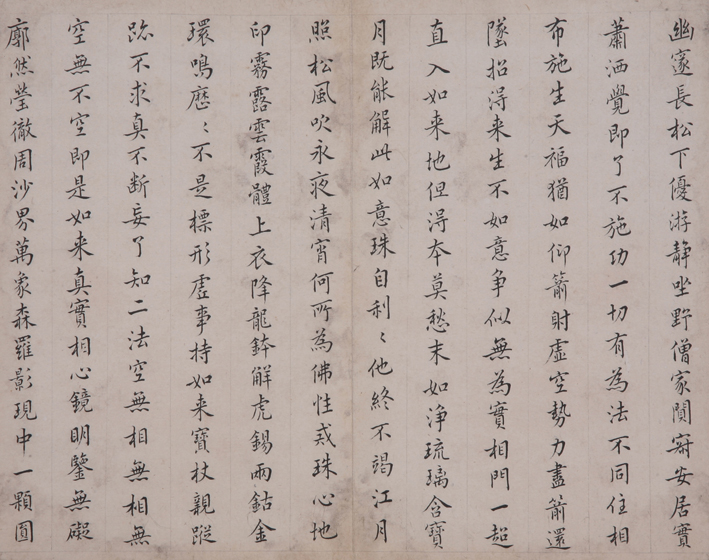 幽邃長松下優游静坐野僧家闃寂安居實
蕭洒覺即了不施功一切有為法不同住相
布施生天福猶如仰箭射虛空勢力盡箭還
墜招淂来生不如意争似無為實相門一超
直入如来地但淂本莫愁末如淨琉璃含寶
月既能解此如意珠自利〻他終不竭江月
照松風吹永夜清宵何所為佛性戒珠心地
印霧露雲霞體上衣降龍鉢解虎錫兩鈷金
環鳴歷〻不是標形虛事持如来寶杖親蹤
跡不求真不断妄了知二法空無相無相無
空無不空即是如来真實相心鏡明鑒無礙
廓然瑩徹周沙界萬象森羅影現中一顆圓